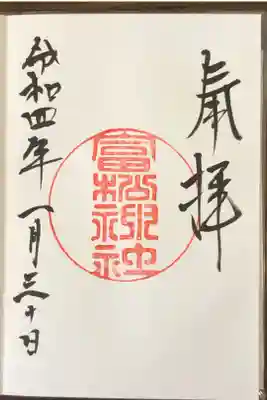 奉拝
富松神社
令和四年一月三十日